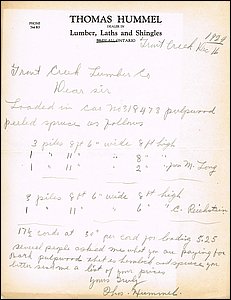 PHONE
THOMAS HUMMEL
DEALER IN
Lumber, Laths and Shingles
ONTARIO
Trout Creek Dec. 16 1929
Trout Creek Lumber Co
Dear sir
Loaded in car No 318473 pulpwood
peeled spruce as follows
3 piles 8 ft 6" wide 8 ft high
1 " 11 " " 8 "
1 " 11 " " 2 " Long
3 piles 8 ft 6" wide 8 ft high
1 " 11 " " 6 " C. Reichstein
17½ cords at 30¢ per cord for loading 5.25
several people asked me what you are paying for
pulpwood this is hembol and spruce you
better send me a list of your prices
Yours Truly
Thos. Hummel